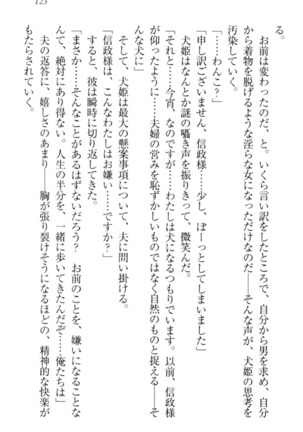 お前は変わったのだ、と。いくら言い訳をしたところで、自分から男を求め、自分
から着物を脱げるような淫らな女になっただけなのだ――そんな声が、犬姫の思考を
汚染していく。
「……わんこ？」
「申し訳ございません、信政様……少し、ぼーっとしてしまいました」
犬姫はなんとか謎の囁き声を振りきって、微笑んだ。
「それと……今宵、なのですが……わたしは犬になるつもりでいます。以前、信政様
が仰ったように……夫婦の営みを恥ずかしいものではなく自然のものと捉える――そ
んな犬に」
そして、犬姫は最大の懸案事項について、夫に問い掛ける。
「信政様は、こんなわたしはお嫌い……ですか？」
すると、彼は瞬時に切り返してきた。
「まさか……そんなことがあるはずないだろう？　お前のことを、嫌いになることな
んて、絶対にあり得ない。人生の半分を、一緒に歩いてきたんだぞ……俺たちは」
夫の返答に、嬉しさのあまり――胸が張り裂けそうになるほどの、精神的な快楽が
もたらされていく。
123